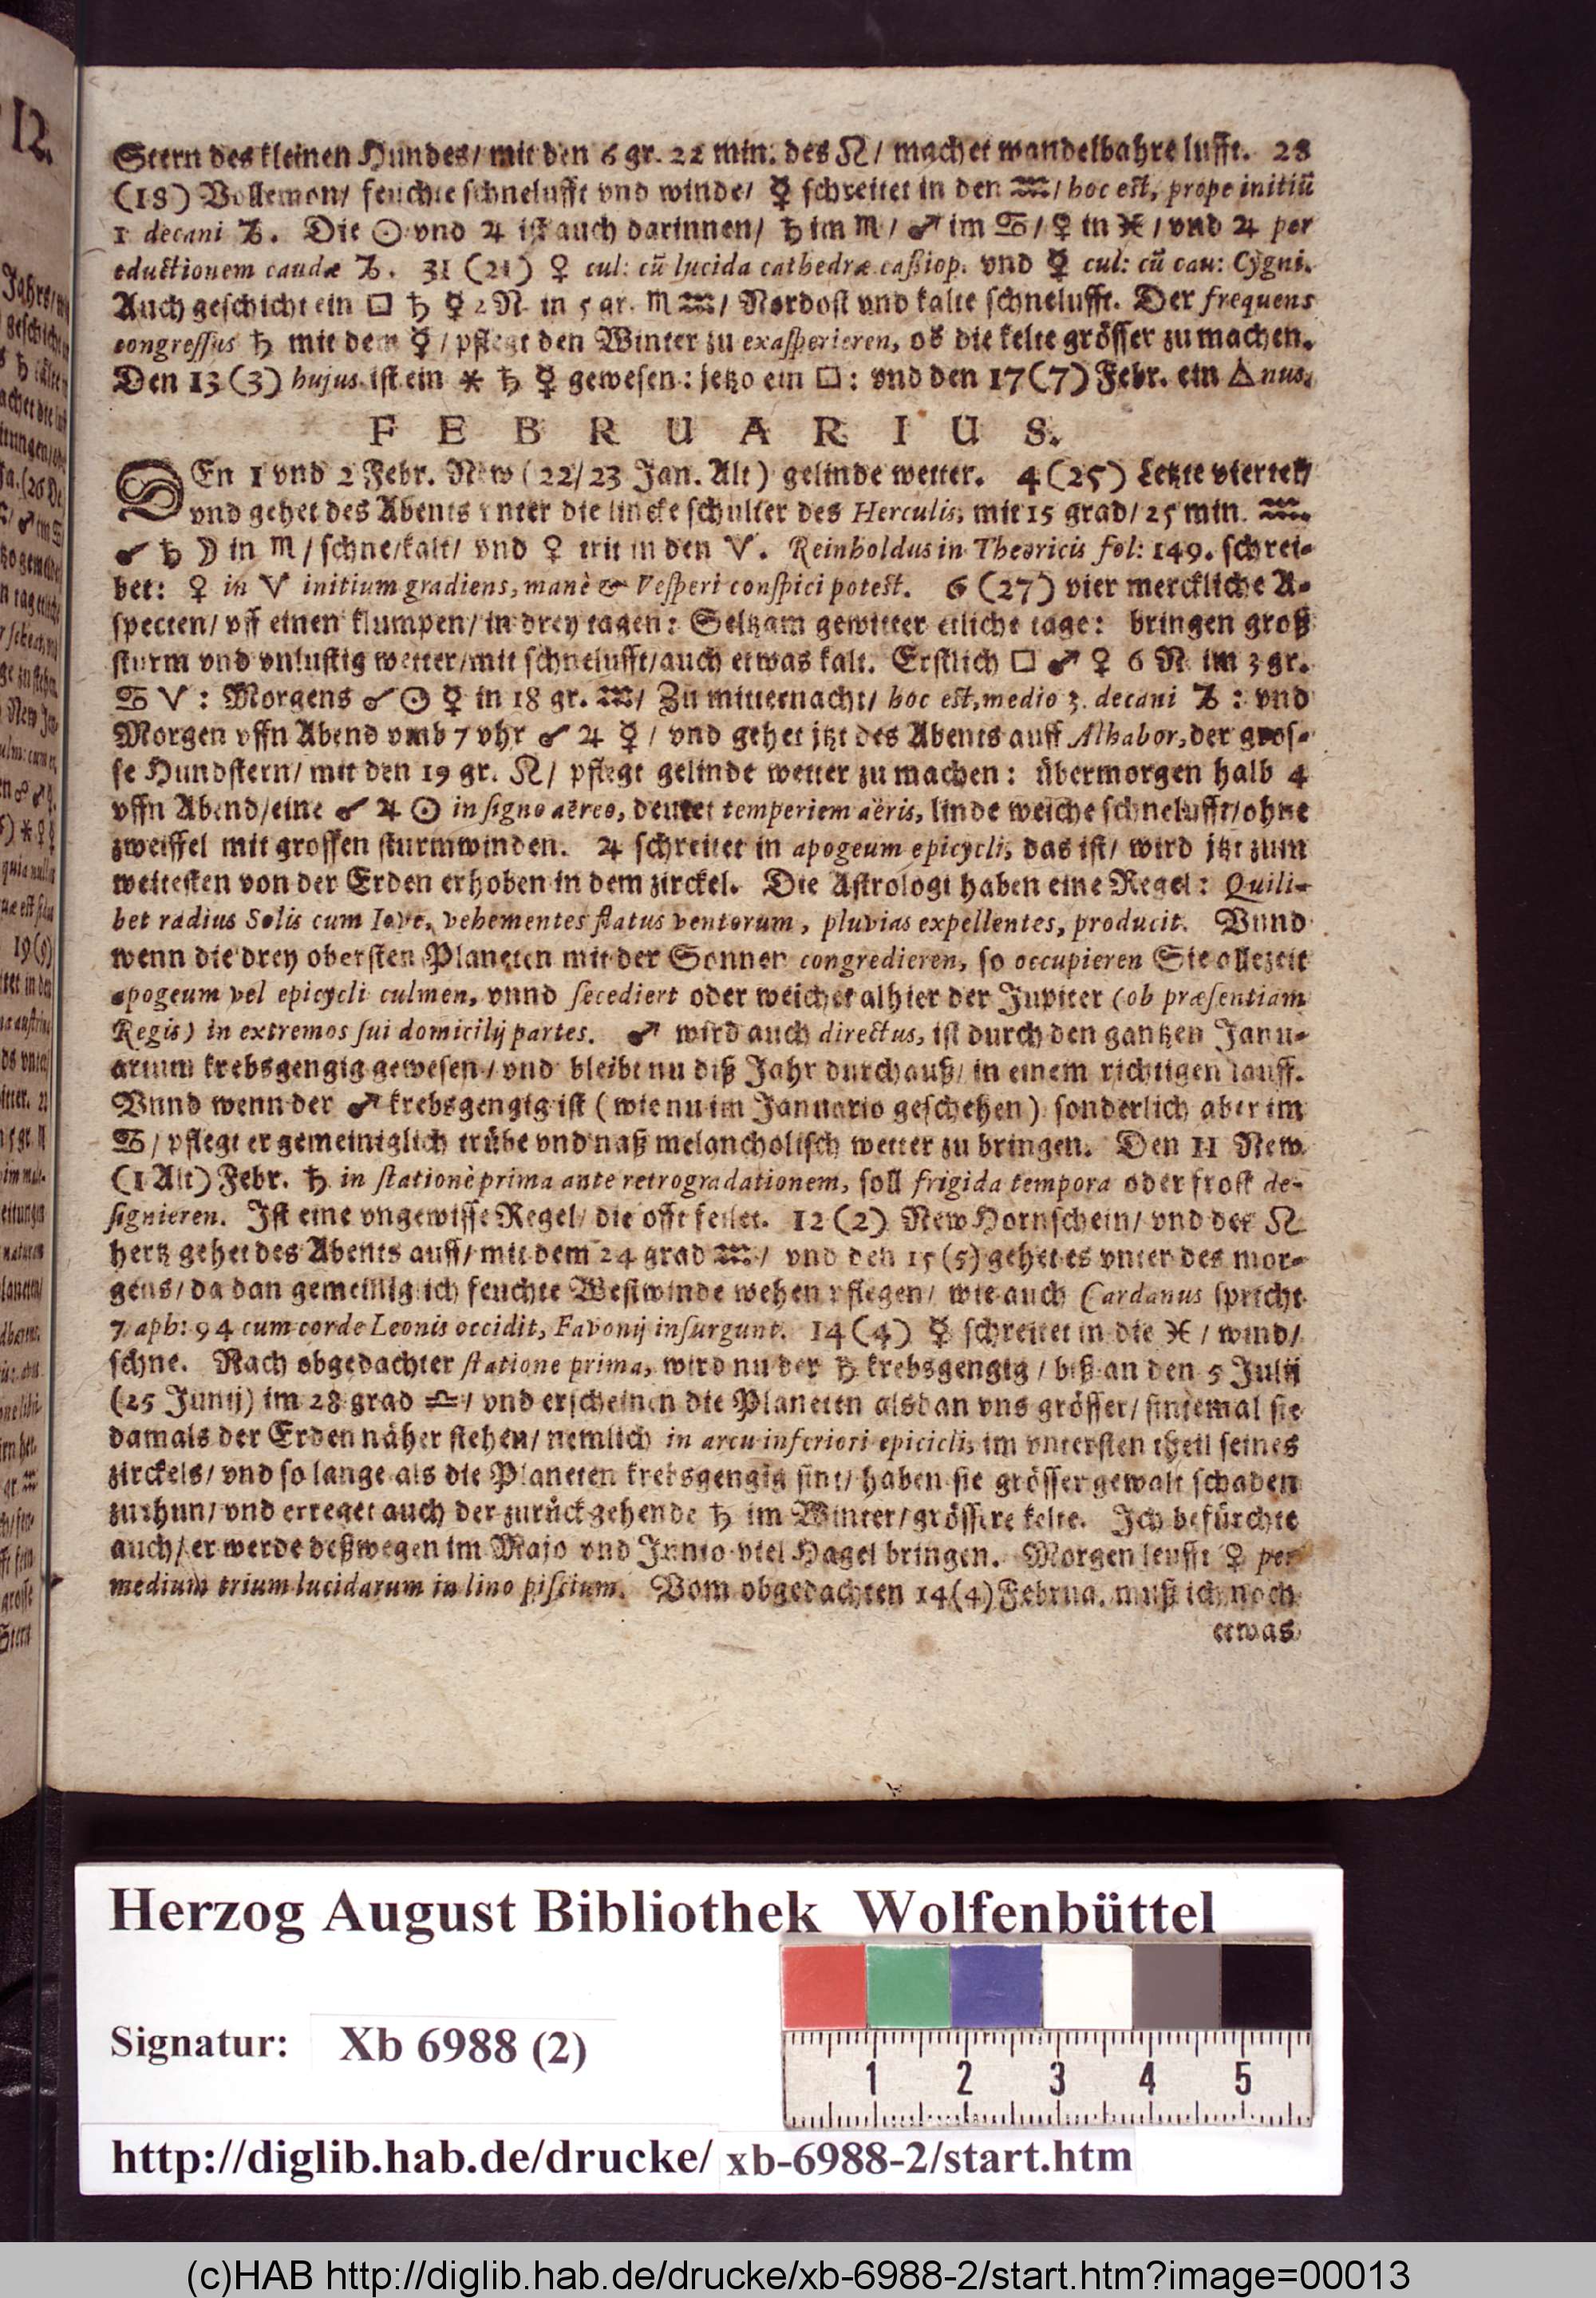 Stern des kleinen Hundes/ mit den 6 gr. 22 min. des ♌/ machet wandelbahre lufft. 28
(18) Vollemon/ feuchte schnelufft vnd winde/ ☿ schreitet in den ♒/ hoc est, prope initiū
1 decani ♑. Die ☉ vnd ♃ ist auch darinnen/ ♄ im ♏/ ♂ im ♋/ ♀ in ♓/ vnd ♃ per
eductionem caudæ ♑. 31 (21) ♀ cul: cū lucida cathedræ cassiop. vnd ☿ cul: cū cau: Cygni.
Auch geschicht ein □ ♄ ☿ 2 N. in 5 gr. ♏ ♒/ Nordost vnd kalte schnelufft. Der frequens
congressus ♄ mit dem ☿/ pflegt den Winter zu exasperieren, ob die kelte grösser zu machen.
Den 13 (3) hujus ist ein ⚹ ♄ ☿ gewesen: jetzo ein □: vnd den 17 (7) Febr. ein △nus.
FEBRUARIUS.
DEn 1 vnd 2 Febr. New (22/23 Jan. Alt) gelinde wetter. 4 (25) Letzte viertel/
vnd gehet des Abents vnter die lincke schulter des Herculis, mit 15 grad/ 25 min. ♒.
☌ ♄ ☽ in ♏/ schne/kalt/ vnd ♀ trit in den ♈. Reinholdus in Theoricis fol: 149. schrei-
bet: ♀ in ♈ initium gradiens, manè & Vesperi conspici potest. 6 (27) vier merckliche A-
specten/ vff einen klumpen/ in drey tagen: Seltzam gewitter etliche tage: bringen groß
sturm vnd vnlustig wetter/mit schnelufft/auch etwas kalt. Erstlich □ ♂ ♀ 6 N. im 3 gr.
♋ ♈: Morgens ☌ ☉ ☿ in 18 gr. ♒/ Zu mitternacht/ hoc est, medio 3. decani ♑: vnd
Morgen vffn Abend vmb 7 vhr ☌ ♃ ☿/ vnd gehet jtzt des Abents auff Alhabor, der gros-
se Hundstern/ mit den 19 gr. ♌/ pflegt gelinde wetter zu machen: übermorgen halb 4
vffn Abend/eine ☌ ♃ ☉ in signo aëreo, deutet temperiem aëris, linde weiche schnelufft/ohne
zweiffel mit grossen sturmwinden. ♃ schreitet in apogeum epicycli, das ist/ wird jtzt zum
weitesten von der Erden erhoben in dem zirckel. Die Astrologi haben eine Regel: Quili-
bet radius Solis cum Iove, vehementes flatus ventorum, pluvias expellentes, producit. Vnnd
wenn die drey obersten Planeten mit der Sonnen congredieren, so occupieren Sie allezeit
apogeum vel epicycli culmen, vnnd secediert oder weichet alhier der Jupiter (ob præsentiam
Regis) in extremos sui domicilij partes. ♂ wird auch directus, ist durch den gantzen Janu-
arium krebsgengig gewesen/ vnd bleibt nu diß Jahr durchauß/ in einem richtigen lauff.
Vnnd wenn der ♂ krebsgengig ist (wie nu im Januario geschehen) sonderlich aber im
♋/ pflegt er gemeiniglich trübe vnd naß melancholisch wetter zu bringen. Den 11 New
(1 Alt) Febr. ♄ in statione prima ante retrogradationem, soll frigida tempora oder frost de-
signieren. Ist eine vngewisse Regel/ die offt feilet. 12 (2) New Hornschein/ vnd des ♌
hertz gehet des Abents auff/ mit dem 24 grad ♒/ vnd den 15 (5) gehet es vnter des mor-
gens/ da dan gemeiniglich feuchte Westwinde wehen pflegen/ wie auch Cardanus spricht
7 aph: 94 cum corde Leonis occidit, Favonij insurgunt. 14 (4) ☿ schreitet in die ♓/ wind/
schne. Nach obgedachter statione prima, wird nu der ♄ krebsgengig/ biß an den 5 Julij
(25 Junij) im 28 grad ♎/ vnd erscheinen die Planeten alsdan vns grösser/ sintemal sie
damals der Erden näher stehen/ nemlich in arcu inferiori epicicli, im vntersten theil seines
zirckels/ vnd so lange als die Planeten krebsgengig sint/ haben sie grösser gewalt schaden
zu thun/ vnd erreget auch der zurück gehende ♄ im Winter/grössere kelte. Ich befürchte
auch/ er werde deßwegen im Majo vnd Junio viel Hagel bringen. Morgen leufft ♀ per
medium trium lucidarum in lino piscium. Vom obgedachten 14 (4) Februa. muß ich noch
etwas
Herzog August Bibliothek Wolfenbüttel
Signatur: Xb 6988 (2)
1 2 3 4 5
http://diglib.hab.de/drucke/ xb-6988-2/start.htm
(c)HAB http://diglib.hab.de/drucke/xb-6988-2/start.htm?image=00013